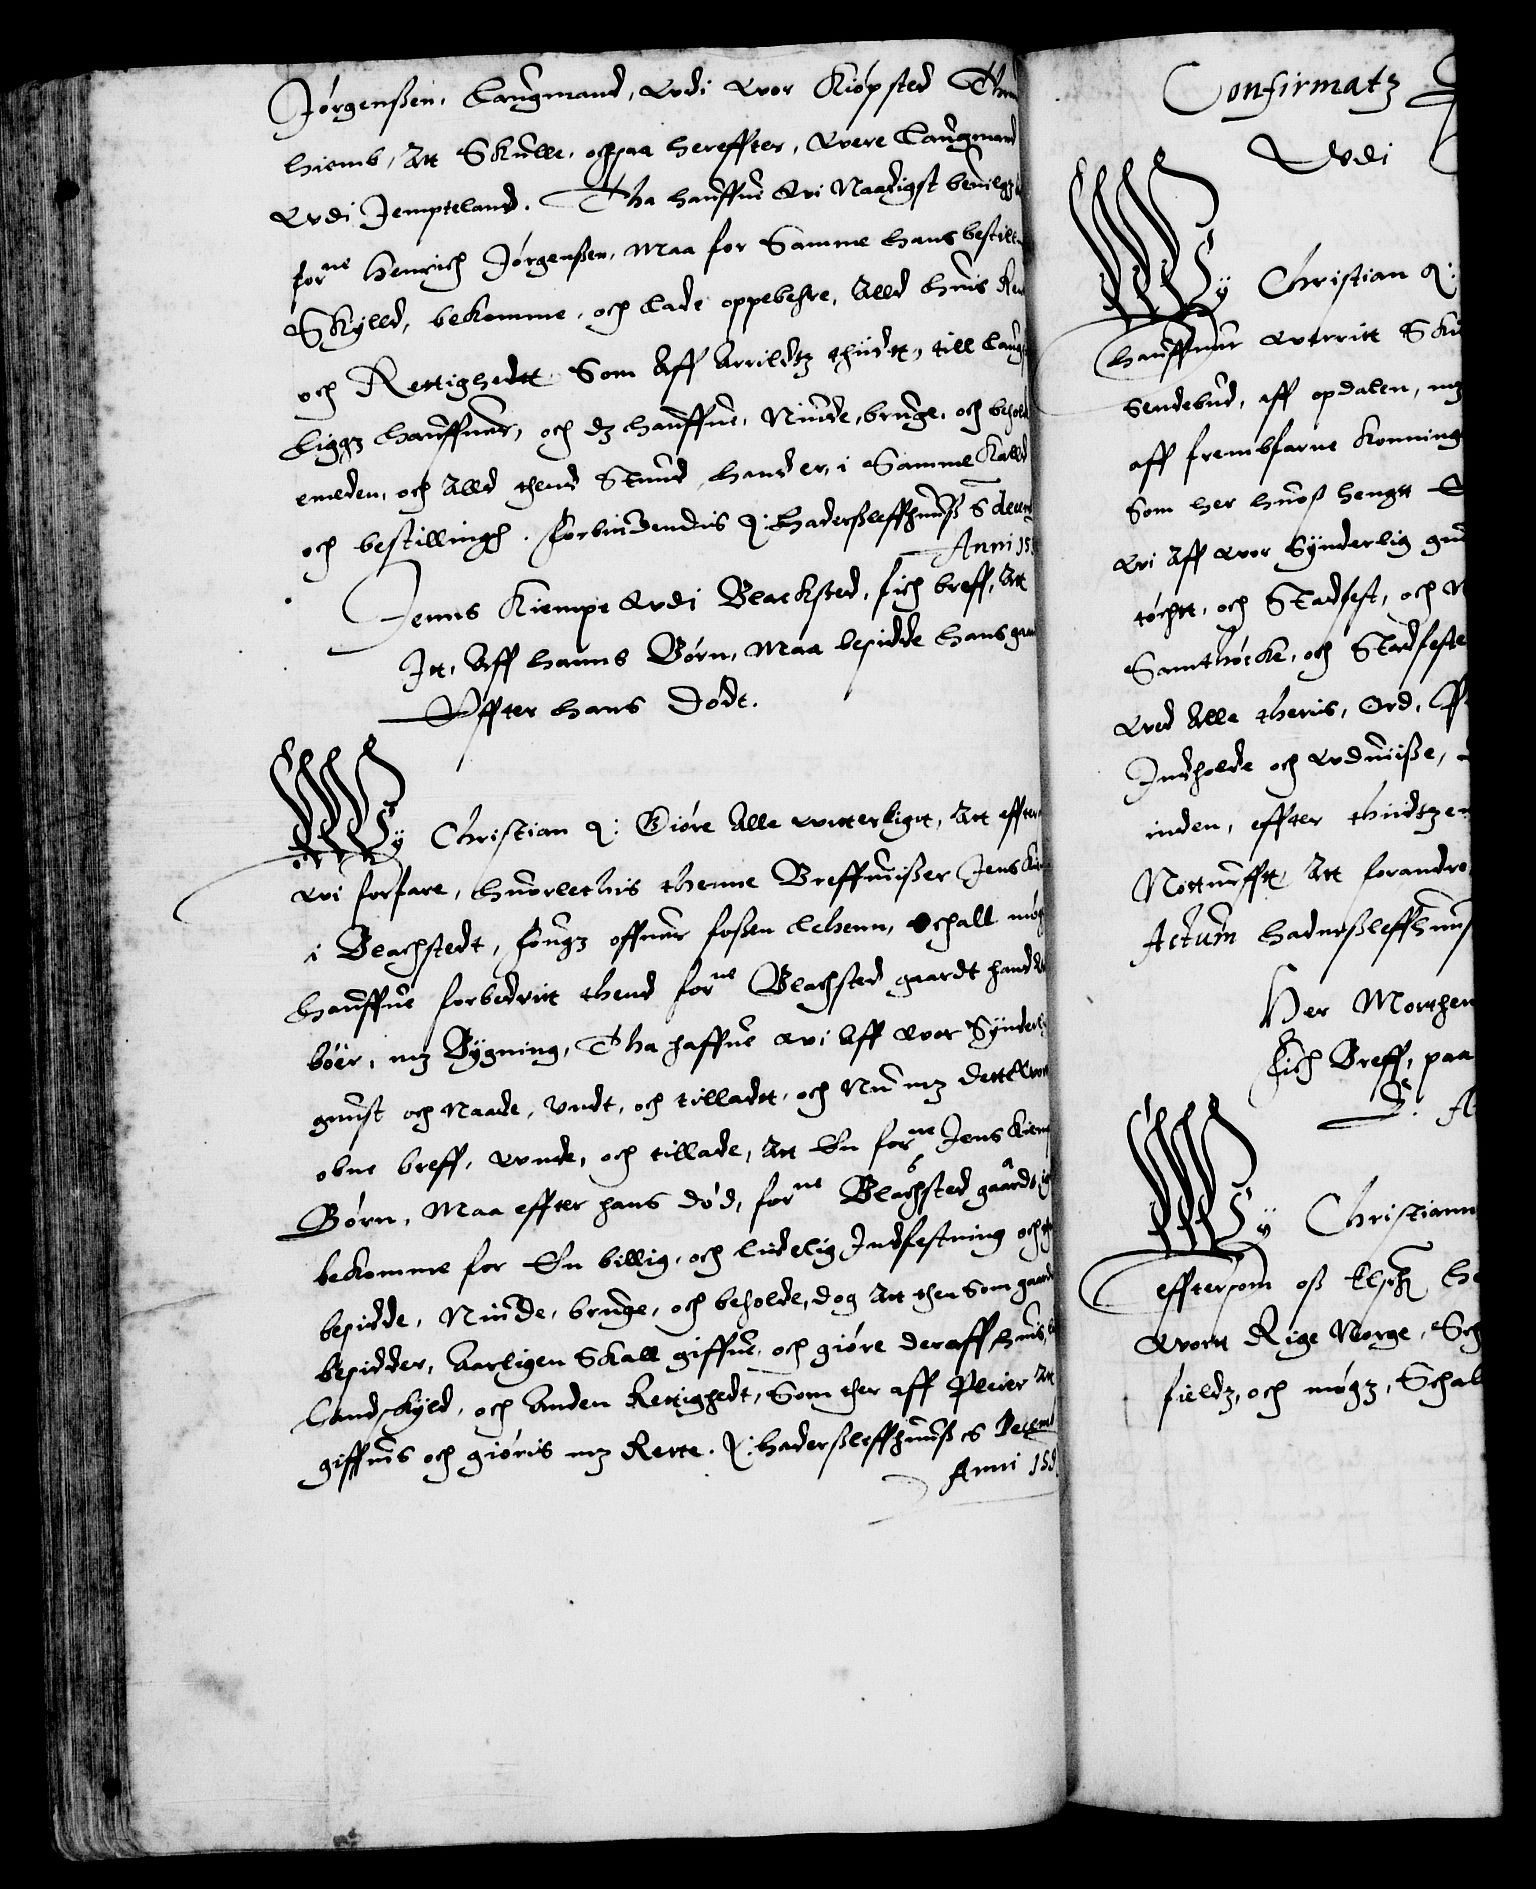 Jørgenßen, Laugmand, vdi vor Kiøpsted Thrund
hiemb, Att Skulle, ochsaa hereffter, vere Laugmand
vdi Jempteland. Tha hauffue vi Naadigst beuilgz
forne Henrich Jørgenßen, maa for Samme hans bestill
Skylld, bekomme, och lade oppebehre, Alld huis Ren
och Rettighedtt Som Aff Arrildtz thiidtt, till Laug
Liggz hauffuer, och dz hauffue, Niude, bruge, och behold
emeden, och Alld thend Stund hand er, i Samme Kalld
och bestillingh. Forbiudendis &: Haderßleffhuuß 6 decemb
Anni 155
Jenns Kiempe vdi Blacksted, fich breff, Att
It, Aff hanns Børn, Maa besidde hans gaar
Effter hans Dødt.
Wy Christian &: Giøre Alle witterligtt, Att effter
vi forfare, huorlethis thenne Breffuißer Jens Kie
i Blachstedt, liugz offuer foßen Lehenn, schall møg
hauffue forbedritt thend forne Blachsted gaardt hand
bøer, mz Bygning, Tha haffue vi Aff vor Synderl
gunst och Naade, vndt, och tilladt, och Nu mz dette vort
obne breff, vnde, och tillade, Att En forne Jens Kiem
Børn, Maa effter hans død, forne Blachsted gaardt
bekomme for En billig, och lidelig Indfestning och
besidde, Niude, bruge, och beholde, dog Att then Som gaard
besidder, Aarligen Skall giffue, och giøre deraff, huis
Landskyld, och Anden Rettighedt, Som ther aff Pleier Att
giffuis och giøris mz Rette. &: haderßleffhuuß 6 Decemb
Anni 155
Confirmatz
Vdi
Wy Christian &:
hauffuer verritt Sku
Sendebud, aff opdalen, mz
aff frembfarne Konning
Som her huoß hengtt
vi Aff vor Synderlig gu
tøchtt, och Stadfest, och N
Samthøcke, och Stadfeste
ved Alle theris, Ord,
Indholde och vduiiße,
inden, effter thiidtzen
Notturfftt Att forandre
Actum haderßleffhuuß
Her Morthen
fich Breff, paa
Wy Christiann
effterssom oß Elsch He
vortt Rige Norge,
fieldz, och møgz, Schal